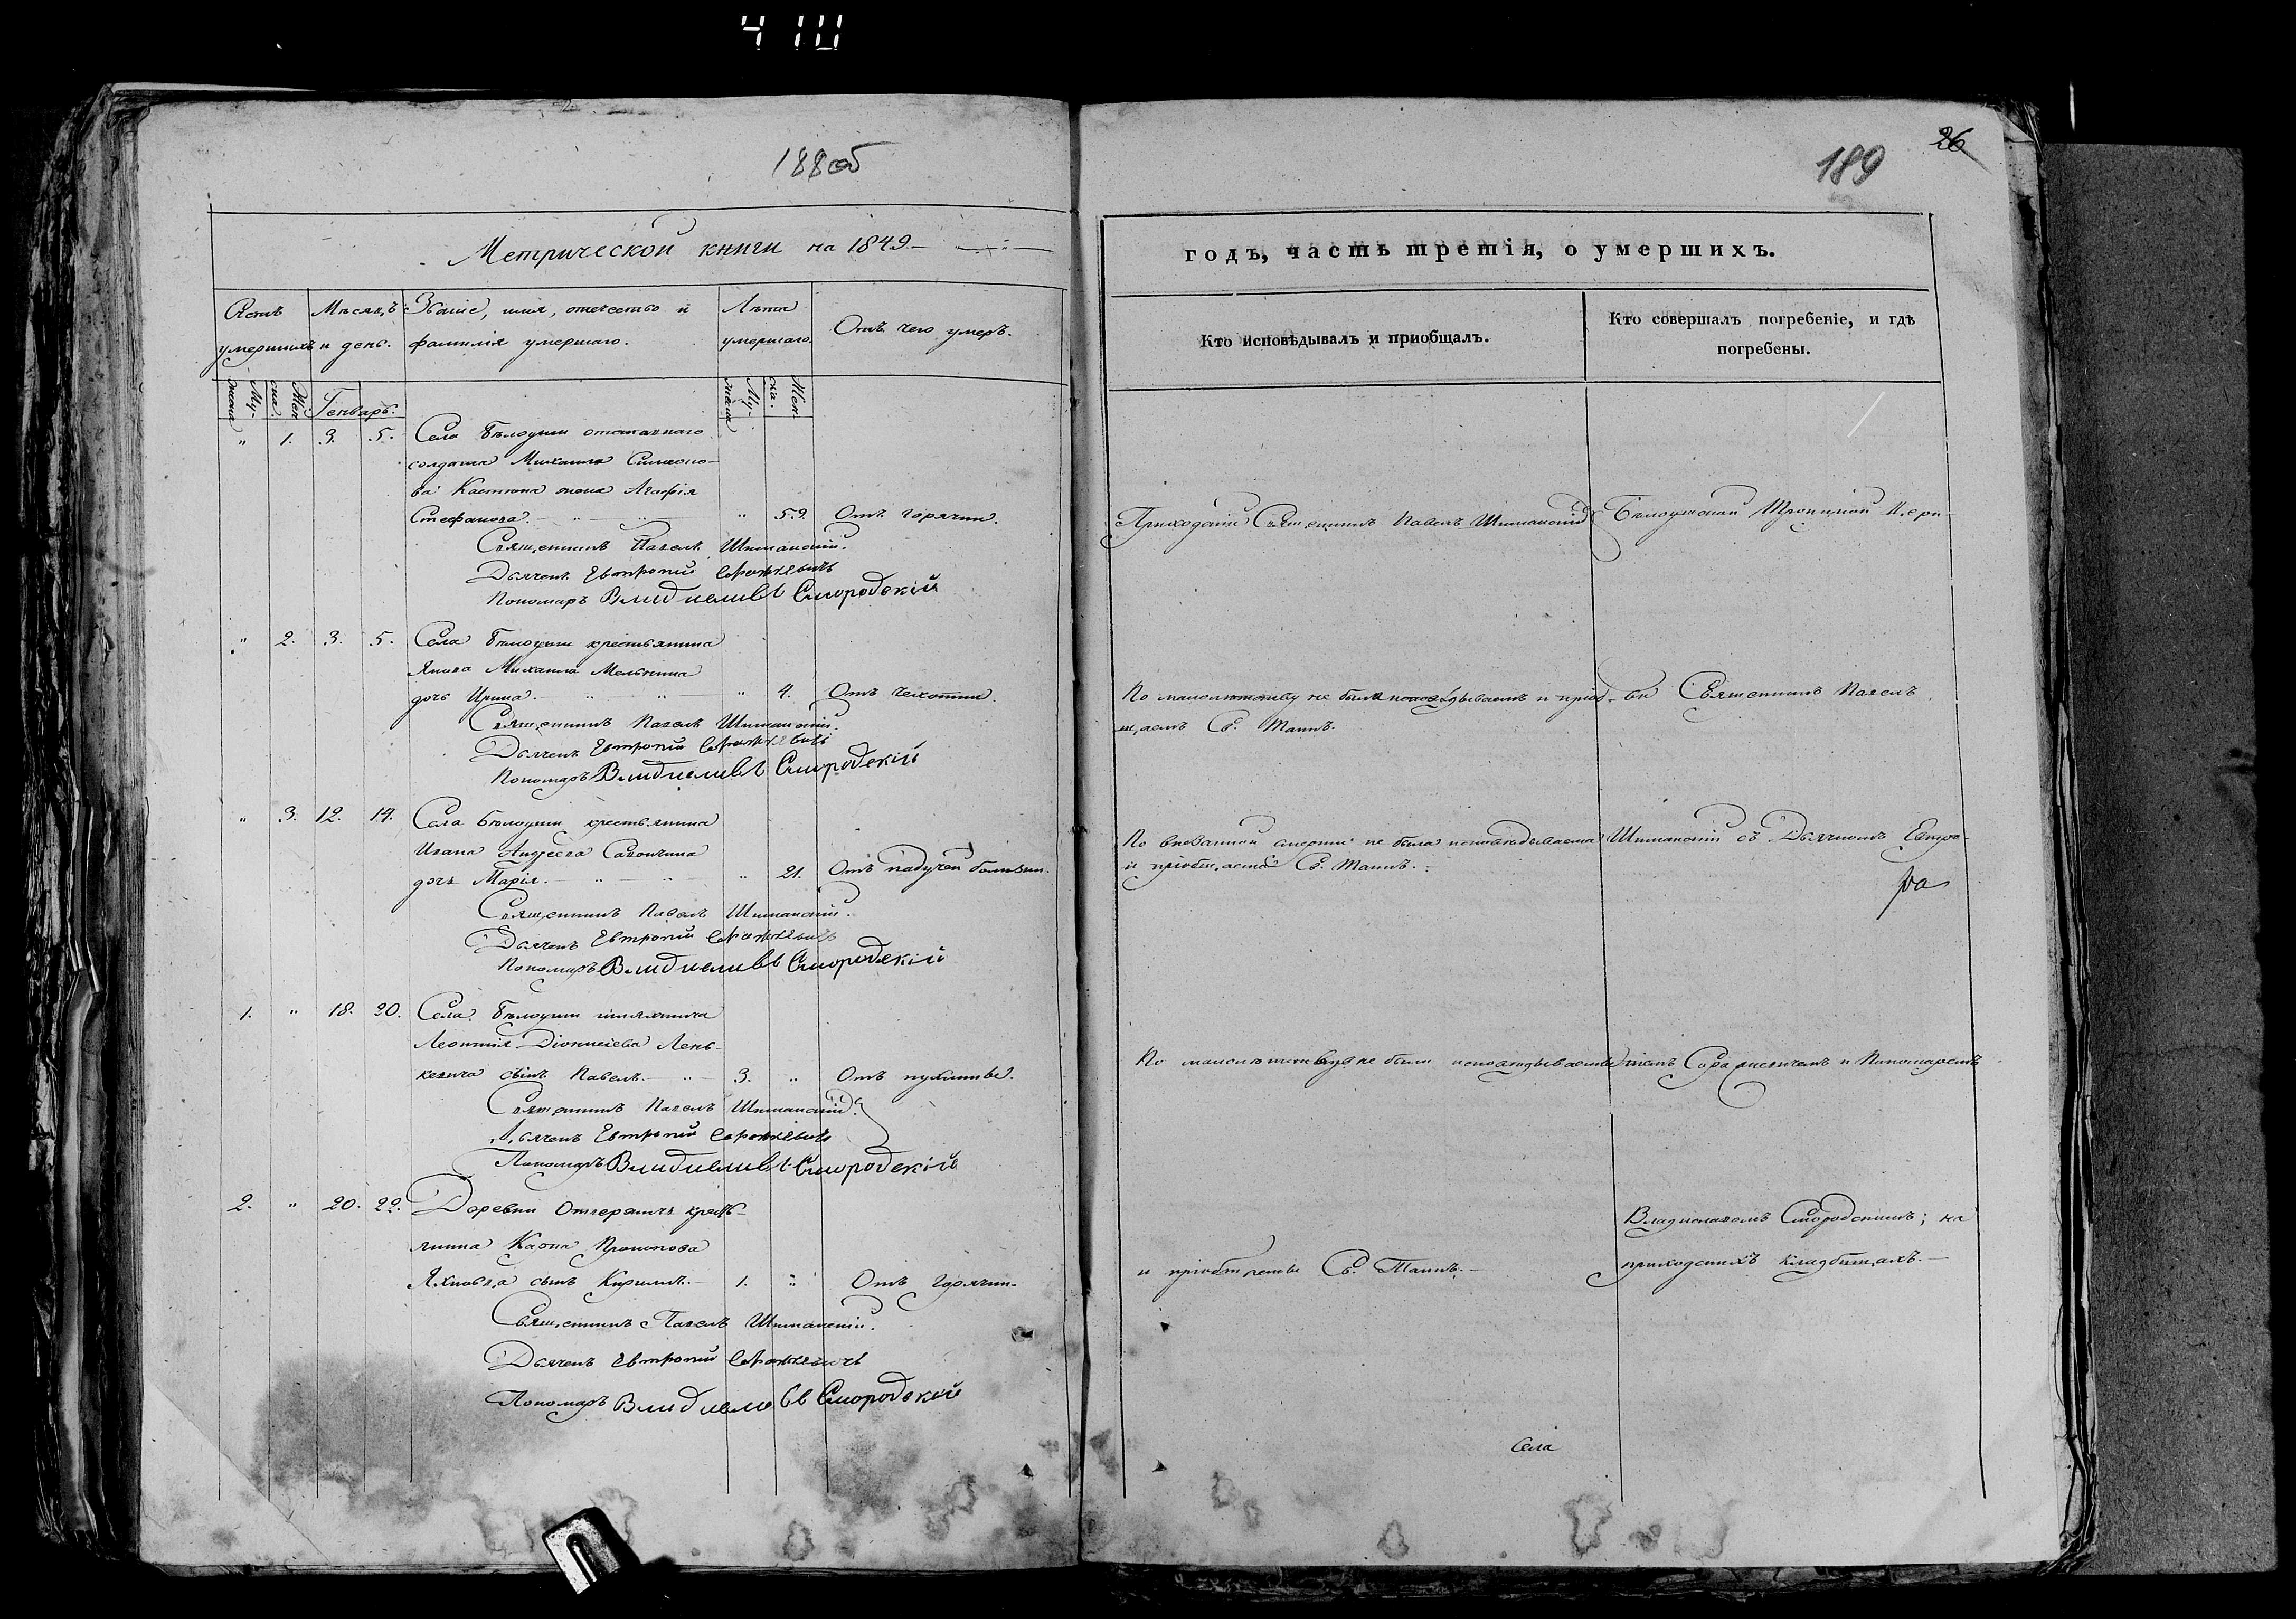 410
188об
Метрической книги на 1849
Счетъ умершихъ
Мѣсяцъ и день.
Званіе, имя, отечество и фамилія умершаго.
Лѣта умершаго.
Отъ чего умеръ.
Му-
жска
Жен
ска.
Генварь.
Му-
жска
Жен-
ска.
" 1. 3. 5. Села Бѣлоуши отставнаго
солдата Михаила Симеоно-
ва жена Агафія
Стефанова. " 59. Отъ горячки.
Священникъ Павелъ Шиманскій.
Дьячекъ Евтропій
Пономарь Владиславъ Смородскій
" 2. 3. 5. Села Бѣлоуши крестьянина
Якова Михаила Мельника
дочь Ирина. " 4. Отъ чахотки.
Священникъ Павелъ Шиманскій.
Дьячекъ Евтропій
Пономарь Владиславъ Смородскій
" 3. 12. 14. Села Бѣлоуши крестьянина
Ивана Андреева
дочь Марія. " 21. Отъ падучей болѣзни.
Священникъ Павелъ Шиманскій.
Дьячекъ Евтропій
Пономарь Владиславъ Смородскій
1. " 18. 20. Села Бѣлоуши шляхтича
Леонтія Діонисіева Лень-
кевича сынъ Павелъ. 3. " Отъ пухлины.
Священникъ Павелъ Шиманскій.
Дьячекъ Евтропій
Пономарь Владиславъ Смородскій
2. " 20. 22. Деревни кресть-
янина Карпа Прокопова
сынъ Кириллъ. 1. " Отъ горячки.
Священникъ Павелъ Шиманскій.
Дьячекъ Евтропій
Пономарь Владиславъ Смородскій
189
26
годъ, часть третія, о умершихъ.
Кто исповѣдывалъ и приобщалъ.
Кто совершалъ погребеніе, и гдѣ
погребены.
Приходскій Священникъ Павелъ Шиманскій
Бѣлоушской Троицкой Церк-
По малолѣтству не была исповѣдываемъ и приоб-
щаемъ Св. Таинъ.
ви Священникъ Павелъ
По внезапной смерти не была исповѣдываема
и пріобщаема Св. Таинъ.
Шиманскій съ Дьячкомъ Евтро-
По малолѣтству не были исповѣдываемы
и Пономаремъ
и пріобщаемы Св. Таинъ.
Владиславомъ Смородскимъ; на
приходскихъ кладбищахъ.
Села